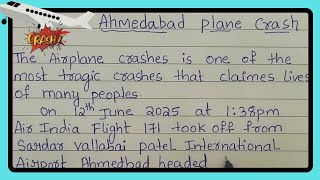 Ahmedabad plane Crash
CRASH
The Airplane crashes is one of the
most tragic crashes that claimes lives
of many peoples.
On 12th June 2025 at 1:38pm
Air India Flight 171 took off from
Sardar vallabai patel International
Airport Ahmedbad headed